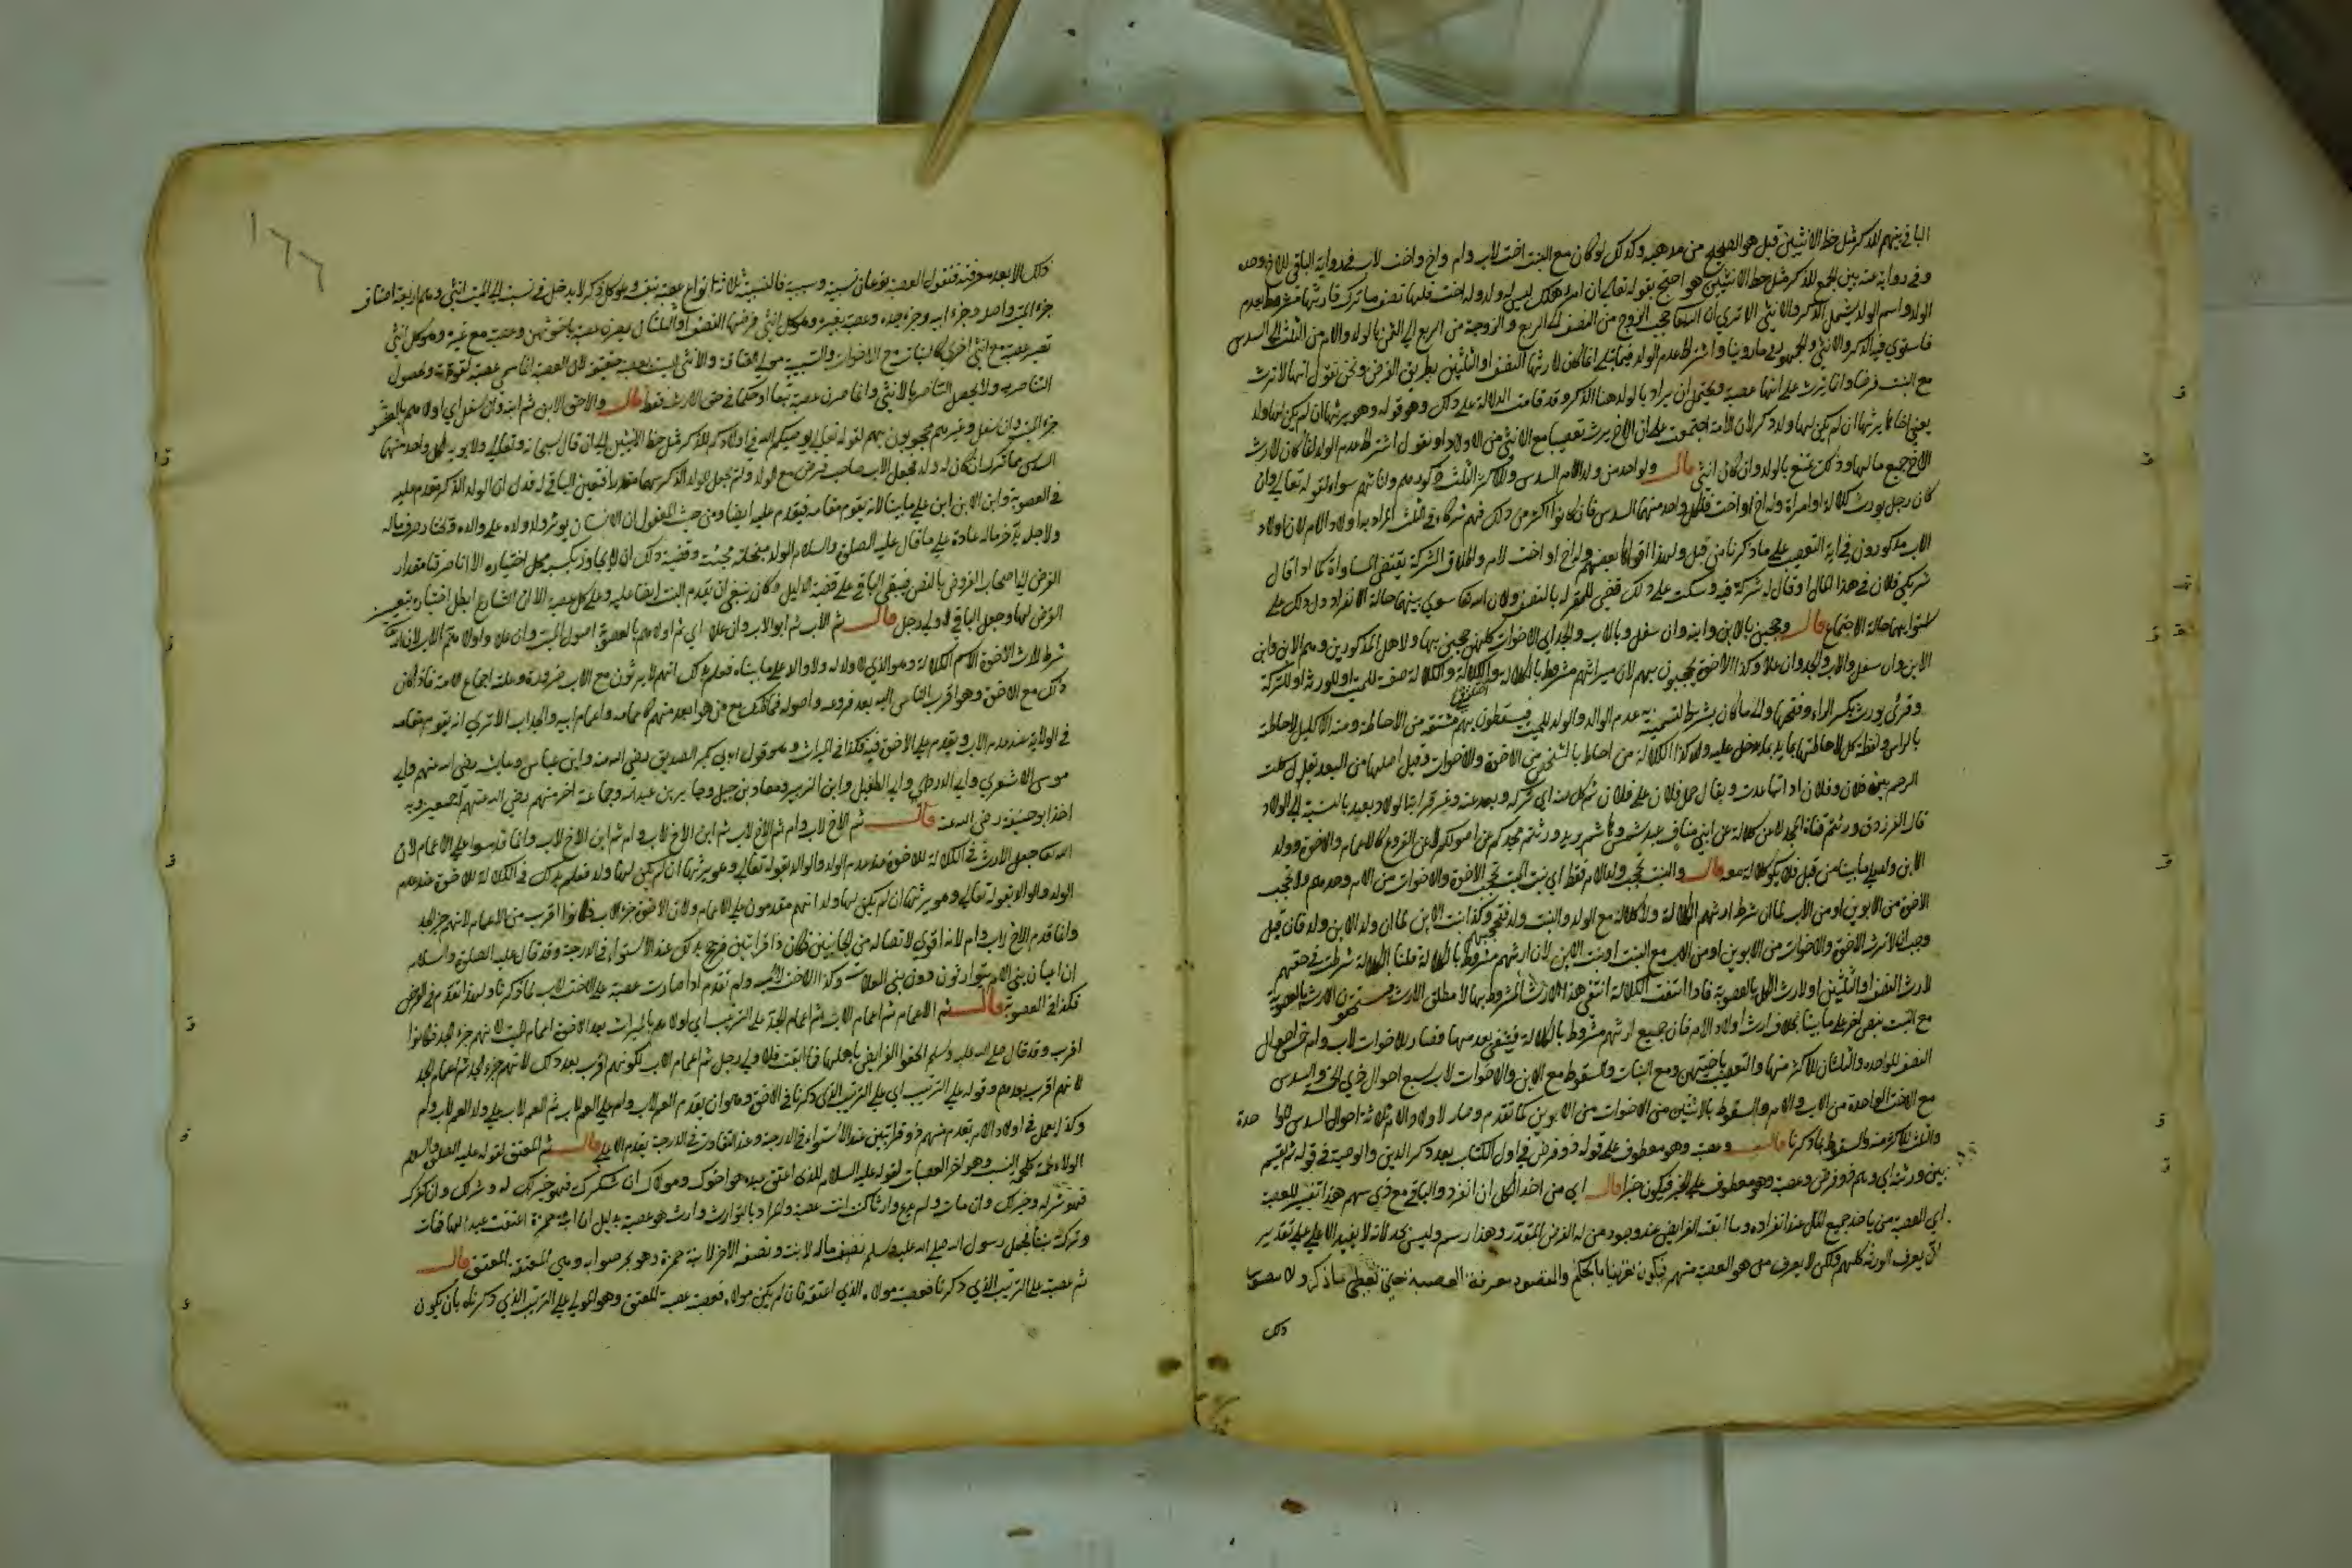 الباقي بينهم للذكر مثل حظ الانثيين قيل هو الصحيح من مذهبه وكذلك لو كان مع البنت اخت لاب وام واخ واخت لاب في رواية الباقي للاخ وحده
وفي رواية عنه بين الجميع للذكر مثل حظ الانثيين هو احتج بقوله تعالى ان امرؤ هلك ليس له ولد وله اخت فلها نصف ما ترك فارثها مشروط بعدم
الولد واسم الولد يشمل الذكر والانثى الا ترى ان الله تعالى حجب الزوج من النصف الى الربع والزوجة من الربع الى الثمن بالولد والام من الثلث الى السدس
فاستوى فيه الذكر والانثى وللجمهور ما روينا واشتراط عدم الولد فيما تلي انما كان لارثها النصف او الثلثين بطريق الفرض ونحن نقول انها لا ترث
مع البنت فرضا وانما ترث على انها عصبة ويحتمل ان يراد بالولد هنا الذكر وقد قامت الدلالة على ذلك وهو قوله وهو يرثها ان لم يكن لها ولد
يعني اخاها يرثها ان لم يكن لها ولد ذكر لان الامة اجتمعت على ان الاخ يرث تعصيبا مع الانثى من الاولاد او نقول اشتراط عدم الولد انما كان لارث
الاخ جميع مالها وذلك يمتنع بالولد وان كان انثى قال ولواحد من ولد الام السدس وللاكثر الثلث ذكورهم واناثهم سواء لقوله تعالى وان
كان رجل يورث كلالة او امراة وله اخ او اخت فلكل واحد منهما السدس فان كانوا اكثر من ذلك فهم شركاء في الثلث المراد به اولاد الام لان اولاد
الاب مذكورون في اية التعصيب على ما ذكرنا من قبل ولهذا قراها بعضهم وله اخ او اخت لام واطلاق الشركة يقتضي المساواة كما اذا قال
شريكي فلان في هذا المال او قال له شركة فيه وسكت على ذلك قضي للمقر له بالنصف ولان الله تعالى سوى بينهما حالة الانفراد ودل ذلك على
استوائهما حالة الاجتماع قال وحجبن بالابن وابنه وان سفل وبالاب والجد اي الاخوات كلهن حجبن بهؤلاء المذكورين وهم الابن وابن
الابن وان سفل والاب والجد وان علا وكذا الاخوة يحجبون بهم لان ميراثهم مشروط بالكلالة والكلالة صفة للميت او للورثة او للتركة
وقرئ يورث بكسر الراء وفتحها وايا ما كان يشترط لتسميته عدم الوالد والولد للميت فيسقطون بهم مشتقة من الاحاطة ومنه الاكليل لاحاطته
بالراس ولفظة كل لاحاطتها بما يدخل عليه وكذا الكلالة من احاط بالشخص من الاخوة والاخوات وقيل اصلها من البعد يقال كلت
الرحم بين فلان وفلان اذا تباعدت ويقال حمل فلان على فلان ثم كل عنه اي تركه وبعد عنه وغير قرابة الولاد بعيد بالنسبة الى الولاد
قال الفرزدق ورثتم قناة المجد لا عن كلالة عن ابني مناف عبد شمس وهاشم يريد ورثتم مجدكم عن اصولكم لا عن الفروع كالاعمام والاخوة وولد
الابن ولد على ما بينا من قبل فلا يكون كلالة معه قال والبنت تحجب ولد الام فقط اي بنت الميت تحجب الاخوة والاخوات من الام وحدهم ولا تحجب
الاخوة من الابوين او من الاب لما ان شرط ارثهم الكلالة ولا كلالة مع الولد والبنت ولد فتحجبهم وكذا بنت الابن لما ان ولد الابن ولد فان قيل
وجب ان لا ترث الاخوة والاخوات من الابوين او من الاب مع البنت او بنت الابن لان ارثهم مشروط بالكلالة قلنا الكلالة شرطت في حقهم
لارث النصف او الثلثين او لارث الكل بالعصوبة فاذا انتفت الكلالة انتفى هذا الارث المشروط بها لا مطلق الارث الارث بالعصوبة
مع البنت بنص اخر على ما بينا بخلاف ارث اولاد الام فان جميع ارثهم مشروط بالكلالة فينتفي بعدمها فصار للاخوات لاب وام خمس احوال
النصف للواحدة والثلثان للاكثر منها والتعصيب باخيهن ومع البنات والسقوط مع الابن وللاخوات لاب سبع احوال هذه الخمسة والسدس
مع الاخت الواحدة من الاب والام والسقوط بالاثنتين من الاخوات من الابوين كما تقدم وصار لاولاد الام ثلاثة احوال السدس للواحدة
والثلث للاكثر منه والسقوط بما ذكرنا قال وعصبة وهو معطوف على قوله ذو فرض في اول الكتاب بعد ذكر الدين والوصية في قوله ثم تقسم
بين ورثته اي وهم ذو فرض وعصبة وهو معطوف على الخبر فيكون خبرا قال اي من اخذ الكل ان انفرد والباقي مع ذي سهم هذا تفسير للعصبة
اي العصبة من ياخذ جميع المال عند انفراده وما ابقته الفرائض عند وجود من له الفرض المقدر وهذا رسم وليس بحد لانه لا يفيد الا على تقدير
ان يعرف الورثة كلهم ولكن لا يعرف من هو العصبة منهم فيكون تعريفا بالحكم والمقصود معرفة العصبة حتى يعطى ما ذكر ولا يتصور
ذلك
١٦٦
ذلك الا بعد معرفته فنقول العصبة نوعان نسبية وسببية فالنسبية ثلاثة انواع عصبة بنفسه وهو كل ذكر لا يدخل في نسبته الى الميت انثى وهم اربعة اصناف
جزء الميت واصله وجزء ابيه وجزء جده وعصبة بغيره وهو كل انثى فرضها النصف او الثلثان يصرن عصبة باخوتهن وعصبة مع غيره وهو كل انثى
تصير عصبة مع انثى اخرى كالبنات مع الاخوات والسببية مولى العتاقة والانثى ليست بعصبة حقيقة لان العصبة انما سمي عصبة لقوته ولحصول
التناصر به ولا يحصل التناصر بالانثى وانما صرن عصبة تبعا او حكما في حق الارث فقط قال والاحق الابن ثم ابنه وان سفل اي اولاهم بالعصوبة
جزء الميت وان سفل وغيرهم محجوبون بهم لقوله تعالى يوصيكم الله في اولادكم للذكر مثل حظ الانثيين الى ان قال سبحانه وتعالى ولابويه لكل واحد منهما
السدس مما ترك ان كان له ولد فجعل الاب صاحب فرض مع الولد ولم يجعل للولد الذكر سهما مقدرا فتعين الباقي له فدل ان الولد الذكر مقدم عليه
في العصوبة وابن الابن ابن على ما بينا لانه يقوم مقامه فيقدم عليه ايضا ومن حيث المعقول ان الانسان يؤثر ولد ولده على والده ويختار صرف ماله
ولاجله يدخر ماله عادة على ما قال عليه الصلوة والسلام الولد مبخلة مجبنة وقضية ذلك ان لا يجاوز بكسبه محل اختياره الا انا صرفنا مقدار
الفرض الى اصحاب الفروض بالنص فيبقى الباقي على قضية الدليل وكان ينبغي ان يقدم البنت ايضا عليه وعلى كل عصبة الا ان الشارع ابطل اختياره بتعيين
الفرض لها وجعل الباقي لاولى رجل قال ثم الاب ثم ابو الاب وان علا اي ثم اولاهم بالعصوبة اصول الميت وان علا واولاهم الاب لان الله تعالى
شرط لارث الاخوة الاسم الكلالة وهو الذي لا ولد له ولا والد على ما بيناه فعلم بذلك انهم لا يرثون مع الاب ضرورة وعليه اجماع الامة فاذا كان
ذلك مع الاخوة وهو اقرب الناس اليه بعد فروعه واصوله فما ظنك مع من هو ابعد منهم كاعمامه واعمام ابيه والجد اب الا ترى انه يقوم مقامه
في الولاية عند عدم الاب ويقدم على الاخوة فيه فكذا في الميراث وهو قول ابي بكر الصديق رضي الله عنه وابن عباس وعائشة رضي الله عنهم وابي
موسى الاشعري وابي الدرداء وابي الطفيل وابن الزبير ومعاذ بن جبل وجابر بن عبد الله وجماعة اخر منهم رضي الله عنهم اجمعين وبه
اخذ ابو حنيفة رضي الله عنه قال ثم الاخ لاب وام ثم الاخ لاب ثم ابن الاخ لاب وام ثم ابن الاخ لاب وانما قدموا على الاعمام لان
الله تعالى جعل الارث في الكلالة للاخوة عند عدم الولد والوالد بقوله تعالى وهو يرثها ان لم يكن لها ولد فعلم بذلك في الكلالة للاخوة عند عدم
الولد والوالد بقوله تعالى وهو يرثها ان لم يكن لها ولد انهم مقدمون على الاعمام ولان الاخوة جزء الاب فكانوا اقرب من الاعمام لانهم جزء الجد
وانما قدم الاخ لاب وام لانه اقوى لاتصاله من الجانبين فكان ذا قرابتين فترجح بذلك عند الاستواء في الدرجة وقد قال عليه الصلوة والسلام
ان اعيان بني الام يتوارثون دون بني العلات وكذا الاخت لاب وام تقدم اذا صارت عصبة على الاخت لاب لما ذكرنا ولهذا تقدم في الفرض
فكذا في العصوبة قال ثم الاعمام ثم اعمام الاب ثم اعمام الجد على الترتيب اي اولاهم بالميراث بعد الاخوة اعمام الميت لانهم جزء الجد فكانوا
اقرب وقد قال صلى الله عليه وسلم الحقوا الفرائض باهلها فما ابقت فلاولى رجل ثم اعمام الاب لكونهم اقرب بعد ذلك لانهم جزء الجد ثم اعمام الجد
لانهم اقرب بعدهم وقوله على الترتيب اي على الترتيب الذي ذكرنا في الاخوة وهو ان يقدم العم لاب وام على العم لاب ثم العم لاب على ولد العم لاب وام
وكذا يعمل في اولاد الام يقدم منهم ذو قرابتين عند الاستواء في الدرجة وعند التفاوت في الدرجة يقدم الاعلى قال ثم المعتق لقوله عليه الصلوة والسلام
الولاء لحمة كلحمة النسب وهو اخر العصبات لقوله عليه السلام للذي اعتق عبده هو اخوك ومولاك ان شكرك فهو خير له وشر لك وان كفرك
فهو شر له وخير لك وان مات ولم يدع وارثا كنت انت عصبته والمراد بالوارث وارث هو عصبة بدليل ان ابنة حمزة اعتقت عبدا لها فمات
وترك بنتا فجعل رسول الله صلى الله عليه وسلم نصف ماله لابنته ونصف الاخر لابنة حمزة وهي المعتقة المعتق قال
ثم عصبته على الترتيب الذي ذكرنا فعصبته مولاه الذي اعتقه فان لم يكن مولاه فعصبته عصبة المعتق وهو المولى على الترتيب الذي ذكرناه بان يكون